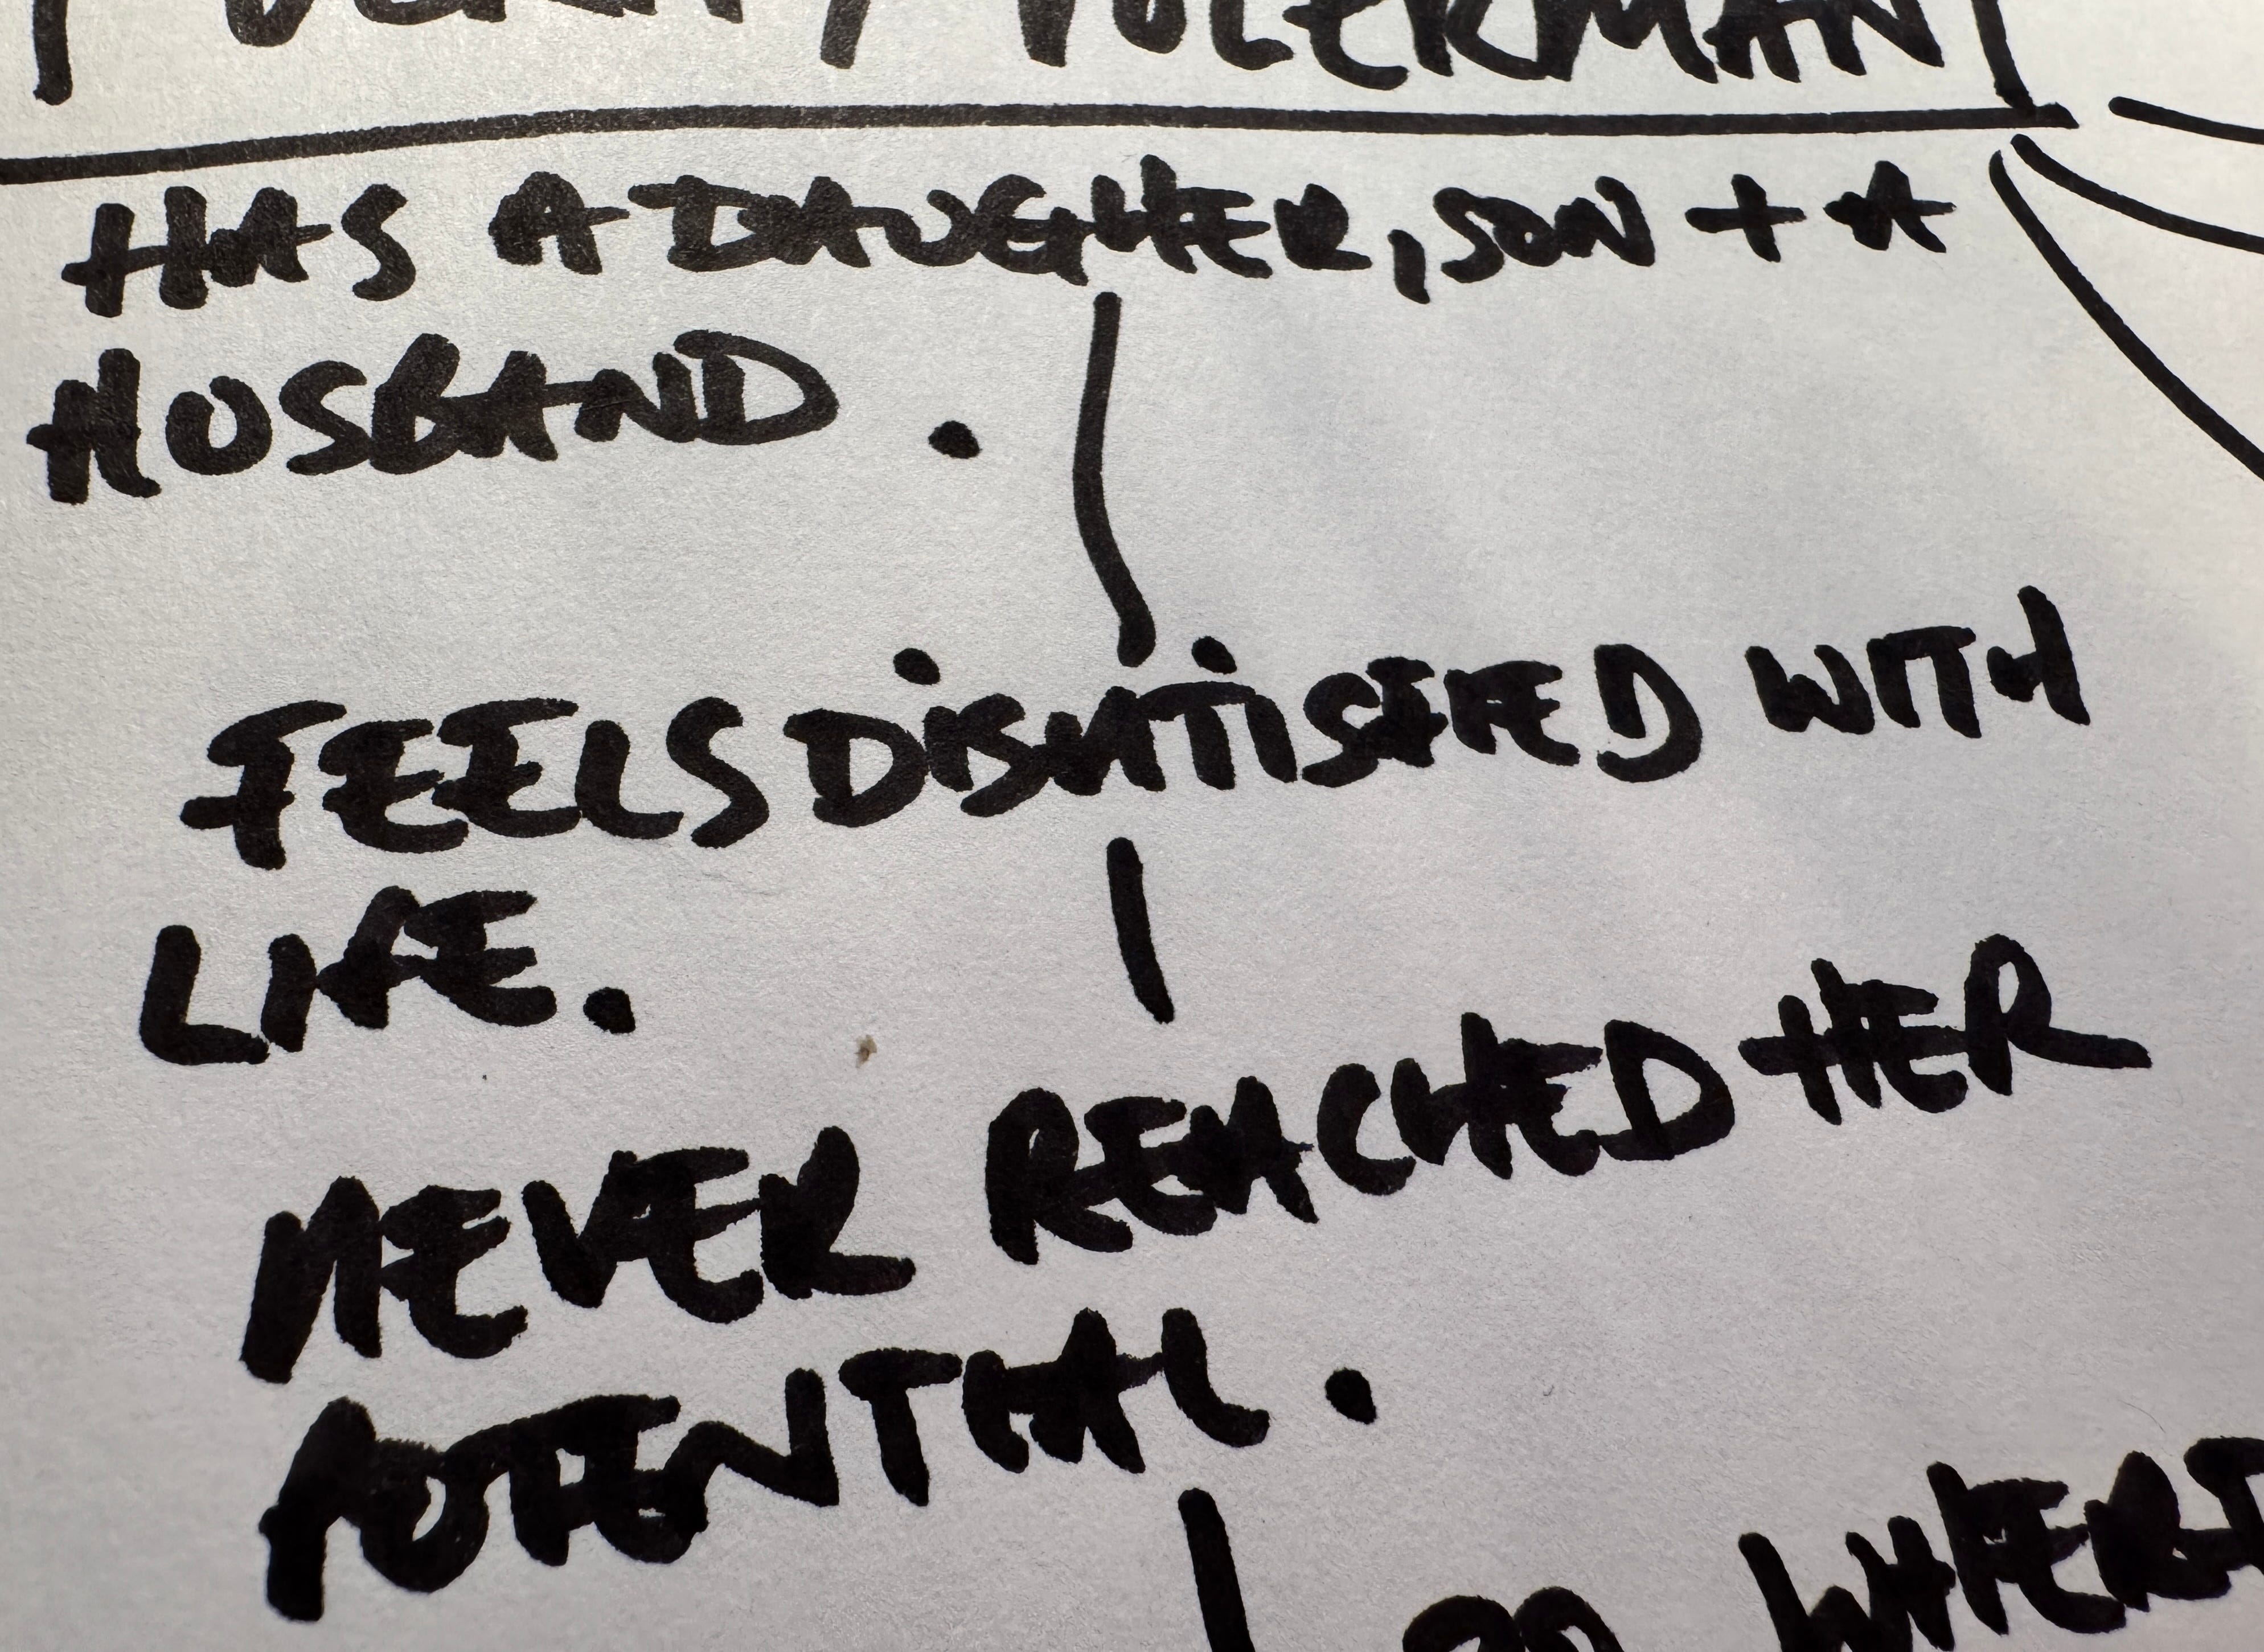 HAS A DAUGHER, SON + A
HUSBAND.
FEELS DISATISIFIED WITH
LIFE.
NEVER REACHED HER
POTENTIAL.